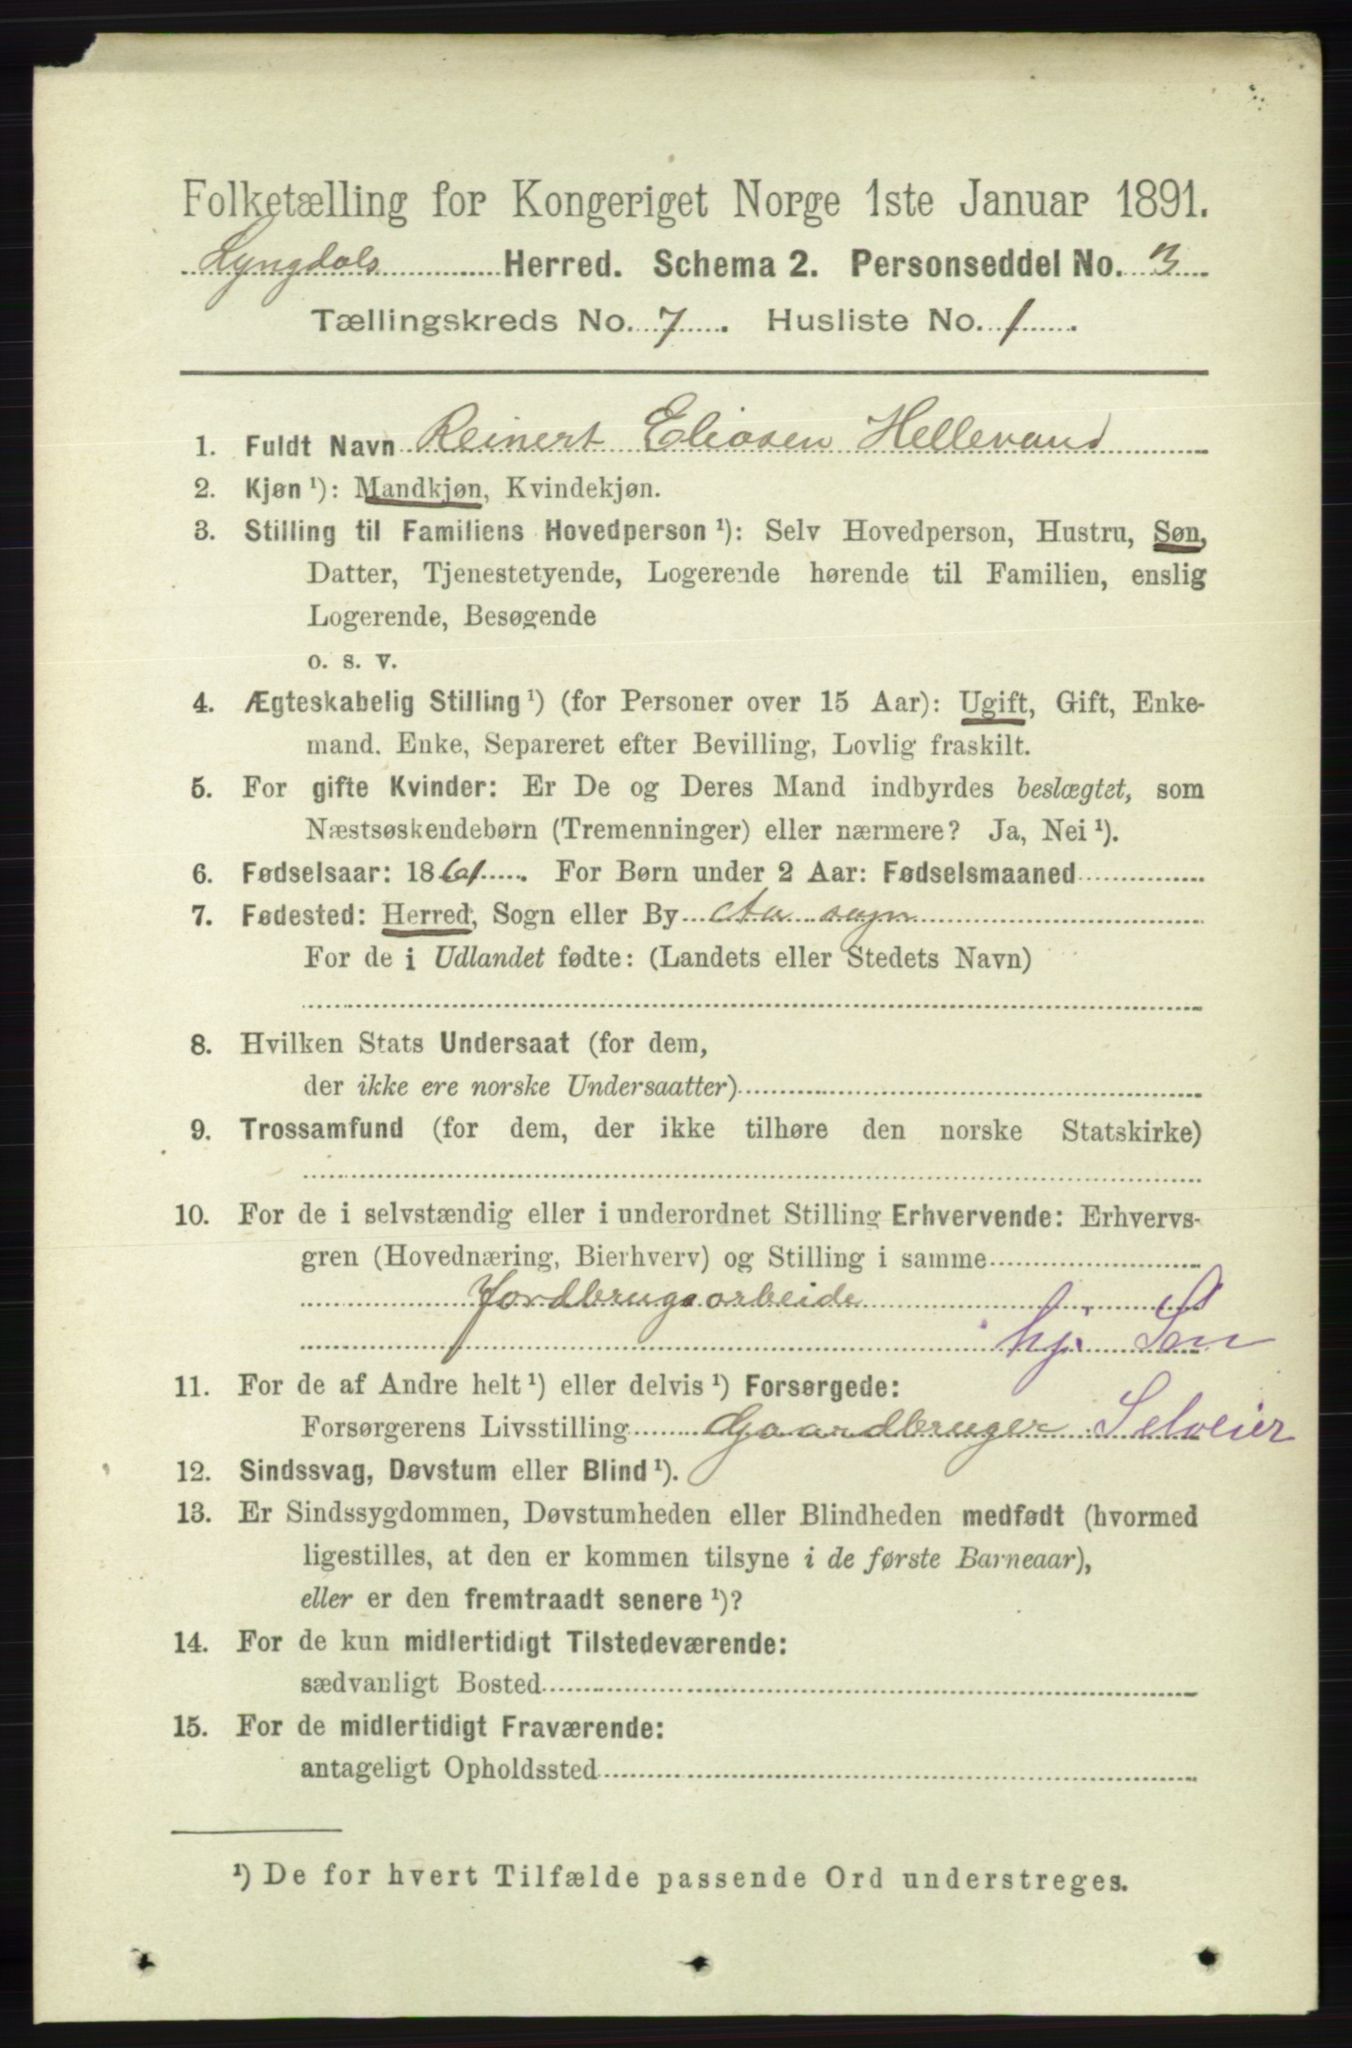 Folketælling for Kongeriget Norge 1ste Januar 1891.
Lyngdals Herred. Schema 2. Personseddel No. 3
Tællingskreds No. 7. Husliste No. 1.
1. Fuldt Navn Reinert Eliasen Hellevand
2. Kjøn ¹): Mandkjøn, Kvindekjøn.
3. Stilling til Familiens Hovedperson ¹): Selv Hovedperson, Hustru, Søn,
Datter, Tjenestetyende, Logerende hørende til Familien, enslig
Logerende, Besøgende
o. s. v.
4. Ægteskabelig Stilling ¹) (for Personer over 15 Aar): Ugift, Gift, Enke-
mand. Enke, Separeret efter Bevilling, Lovlig fraskilt.
5. For gifte Kvinder: Er De og Deres Mand indbyrdes beslægtet, som
Næstsøskendebørn (Tremenninger) eller nærmere? Ja, Nei ¹).
6. Fødselsaar: 1861. For Børn under 2 Aar: Fødselsmaaned
7. Fødested: Herred, Sogn eller By Aa sogn
For de i Udlandet fødte: (Landets eller Stedets Navn)
8. Hvilken Stats Undersaat (for dem,
der ikke ere norske Undersaatter)
9. Trossamfund (for dem, der ikke tilhøre den norske Statskirke)
10. For de i selvstændig eller i underordnet Stilling Erhvervende: Erhvervs-
gren (Hovednæring, Bierhverv) og Stilling i samme
Jordbrugsarbeide
hj. Søn
11. For de af Andre helt ¹) eller delvis ¹) Forsørgede:
Forsørgerens Livsstilling Gaardbruger Selveier
12. Sindssvag, Døvstum eller Blind ¹).
13. Er Sindssygdommen, Døvstumheden eller Blindheden medfødt (hvormed
ligestilles, at den er kommen tilsyne i de første Barneaar),
eller er den fremtraadt senere ¹)?
14. For de kun midlertidigt Tilstedeværende:
sædvanligt Bosted
15. For de midlertidigt Fraværende:
antageligt Opholdssted
¹) De for hvert Tilfælde passende Ord understreges.